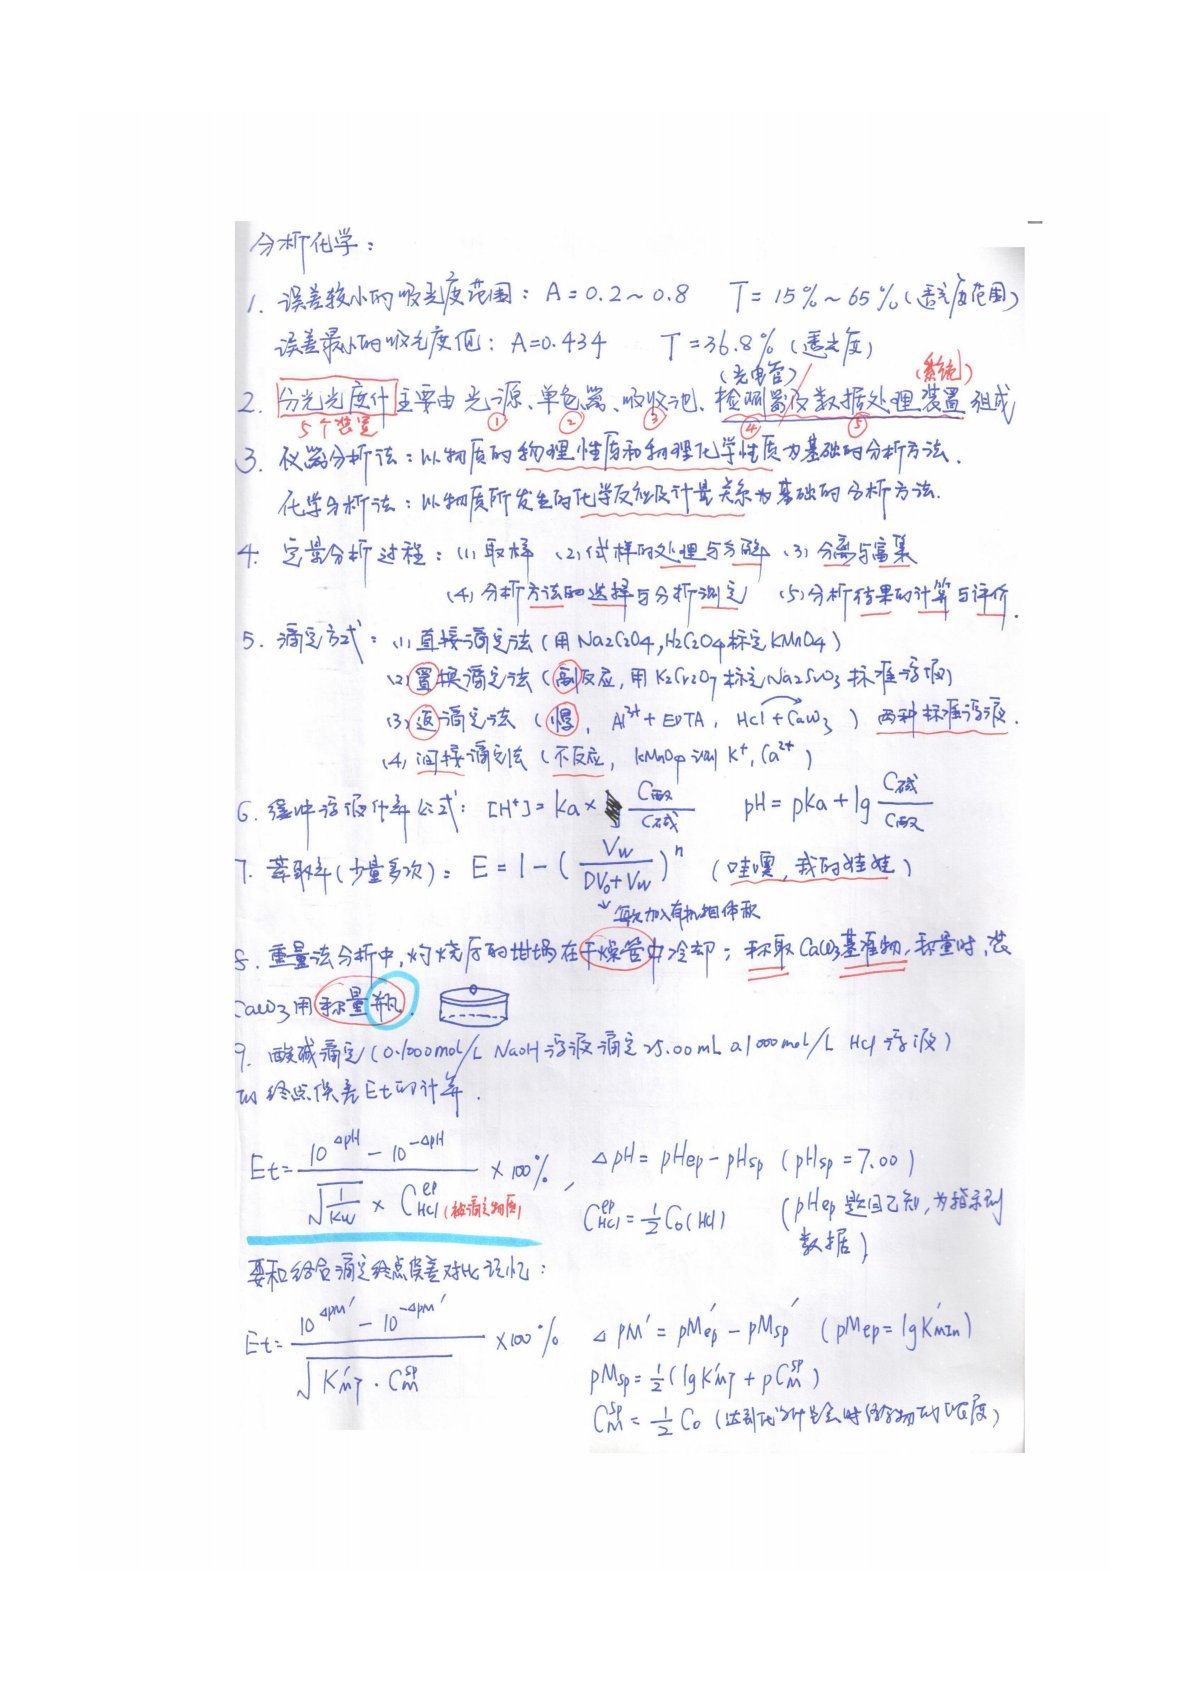 分析化学：
1. 误差较小的吸光度范围：A=0.2~0.8 T=15%~65%(透光度范围)
误差最小的吸光度值：A=0.434 T=36.8%(透光度)
(光电管) (系统)
2. 分光光度计主要由光源、单色器、吸收池、检测器及数据处理装置组成
5个装置 ① ② ③ ④ ⑤
3. 仪器分析法：以物质的物理性质和物理化学性质为基础的分析方法.
化学分析法：以物质所发生的化学反应及计量关系为基础的分析方法.
4. 定量分析过程：(1)取样 (2)试样的处理与分解 (3)分离与富集
(4)分析方法的选择与分析测定 (5)分析结果的计算与评价.
5. 滴定方式：(1)直接滴定法(用Na2C2O4,H2C2O4标定KMnO4)
(2)置换滴定法(副反应,用K2Cr2O7标定Na2S2O3标准溶液)
(3)返滴定法(慢, Al³⁺+EDTA, HCl+CaCO3)两种标准溶液.
(4)间接滴定法(不反应, KMnO4测K⁺,Ca²⁺)
6. 缓冲溶液计算公式：[H⁺]=Ka× C酸/C碱 pH=pKa+lg C碱/C酸
7. 萃取率(少量多次)：E=1-(Vw/(DVo+Vw))ⁿ (哇噻,我的娃娃)
↓每次加入有机相体积
8. 重量法分析中,灼烧后的坩埚在干燥管中冷却；称取CaCO3基准物,称量时,装
CaCO3用称量瓶.
9. 酸碱滴定(0.1000mol/L NaOH溶液滴定25.00mL 0.1000mol/L HCl溶液)
的终点误差Et的计算.
Et= (10^ΔpH - 10^-ΔpH)/(√(1/Kw) × C^ep HCl(被滴定物质)) ×100%, ΔpH=pHep-pHsp (pHsp=7.00)
C^ep HCl=½C0(HCl) (pHep题目已知,为指示剂
数据)
要和络合滴定终点误差对比记忆：
Et= (10^ΔpM′ - 10^-ΔpM′)/√(K′MY·C^sp M) ×100% ΔpM′=pM′ep-pM′sp (pMep=lgK′MIn)
pMsp=½(lgK′MY+pC^sp M)
C^sp M=½C0(达到化学计量点时待测物的浓度)